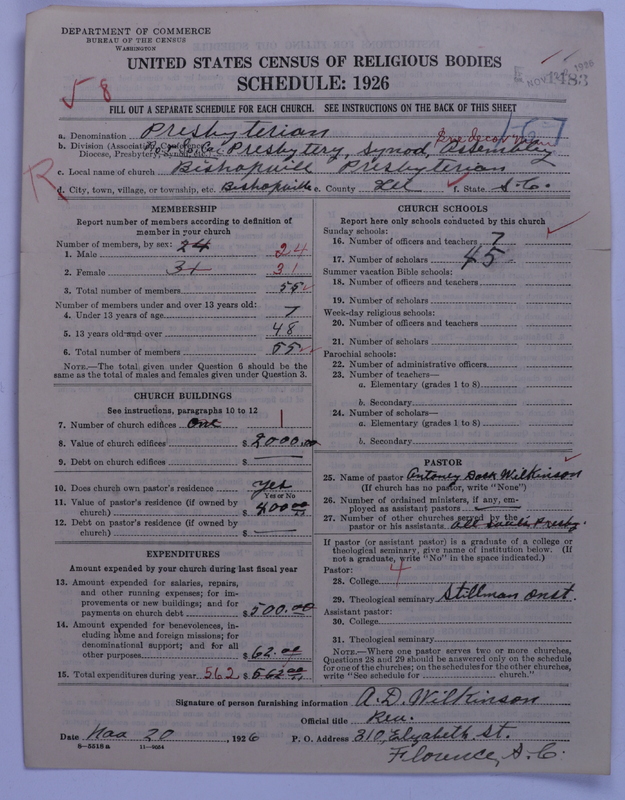 DEPARTMENT OF COMMERCE
BUREAU OF THE CENSUS
WASHINGTON
UNITED STATES CENSUS OF RELIGIOUS BODIES
SCHEDULE: 1926
NOV 1926
1183
58
FILL OUT A SEPARATE SCHEDULE FOR EACH CHURCH. SEE INSTRUCTIONS ON THE BACK OF THIS SHEET
167
a. Denomination Presbyterian
b. Division (Association, Conference, Presbytery, Synod, Assembly
Diocese, Presbytery, Synod, etc.)
c. Local name of church Bishopville Presbyterian
R
d. City, town, village, or township, etc. Bishopville e. County Lee f. State S.C.
MEMBERSHIP
Report number of members according to definition of member in your church
Number of members, by sex: 24
1. Male 24
2. Female 31 31
3. Total number of members 55
Number of members under and over 13 years old:
4. Under 13 years of age 7
5. 13 years old and over 48
6. Total number of members 55
NOTE.—The total given under Question 6 should be the
same as the total of males and females given under Question 3.
CHURCH BUILDINGS
See instructions, paragraphs 10 to 12
7. Number of church edifices one 1
8. Value of church edifices $ 2000.00
9. Debt on church edifices $ —
10. Does church own pastor's residence yes
Yes or No
11. Value of pastor's residence (if owned by
church) $ 800
12. Debt on pastor's residence (if owned by
church) $ —
EXPENDITURES
Amount expended by church during last fiscal year
13. Amount expended for salaries, repairs,
and other running expenses; for im-
provements or new buildings; and for
payments on church debt $ 500.00
14. Amount expended for benevolences, in-
cluding home and foreign missions; for
denominational support; and for all
other purposes $ 62.00
15. Total expenditures during year 562 $ 562.00
CHURCH SCHOOLS
Report here only schools conducted by this church
Sunday schools:
16. Number of officers and teachers 7
17. Number of scholars 45
Summer vacation Bible schools:
18. Number of officers and teachers
19. Number of scholars
Week-day religious schools:
20. Number of officers and teachers
21. Number of scholars
Parochial schools:
22. Number of administrative officers
23. Number of teachers—
a. Elementary (grades 1 to 8)
b. Secondary
24. Number of scholars—
a. Elementary (grades 1 to 8)
b. Secondary
PASTOR
25. Name of pastor Antoney Dock Wilkinson
(If church has no pastor, write "None")
26. Number of ordained ministers, if any, em-
ployed as assistant pastors
27. Number of other churches served by the
pastor or his assistants
If pastor (or assistant pastor) is a graduate of a college or
theological seminary, give name of institution below. (If
not a graduate, write "No" in the space indicated.)
Pastor:
28. College 4
29. Theological seminary Stillman Inst.
Assistant pastor:
30. College
31. Theological seminary
NOTE.—Where one pastor serves two or more churches,
Questions 28 and 29 should be answered only on the schedule
for one of the churches; on the schedules for the other churches,
write "See schedule for church."
Signature of person furnishing information A. D. Wilkinson
Official title Rev.
Date 20, 1926 P. O. Address 310, Elizabeth St.
8—5518 a 11—9664
Florence, S.C.